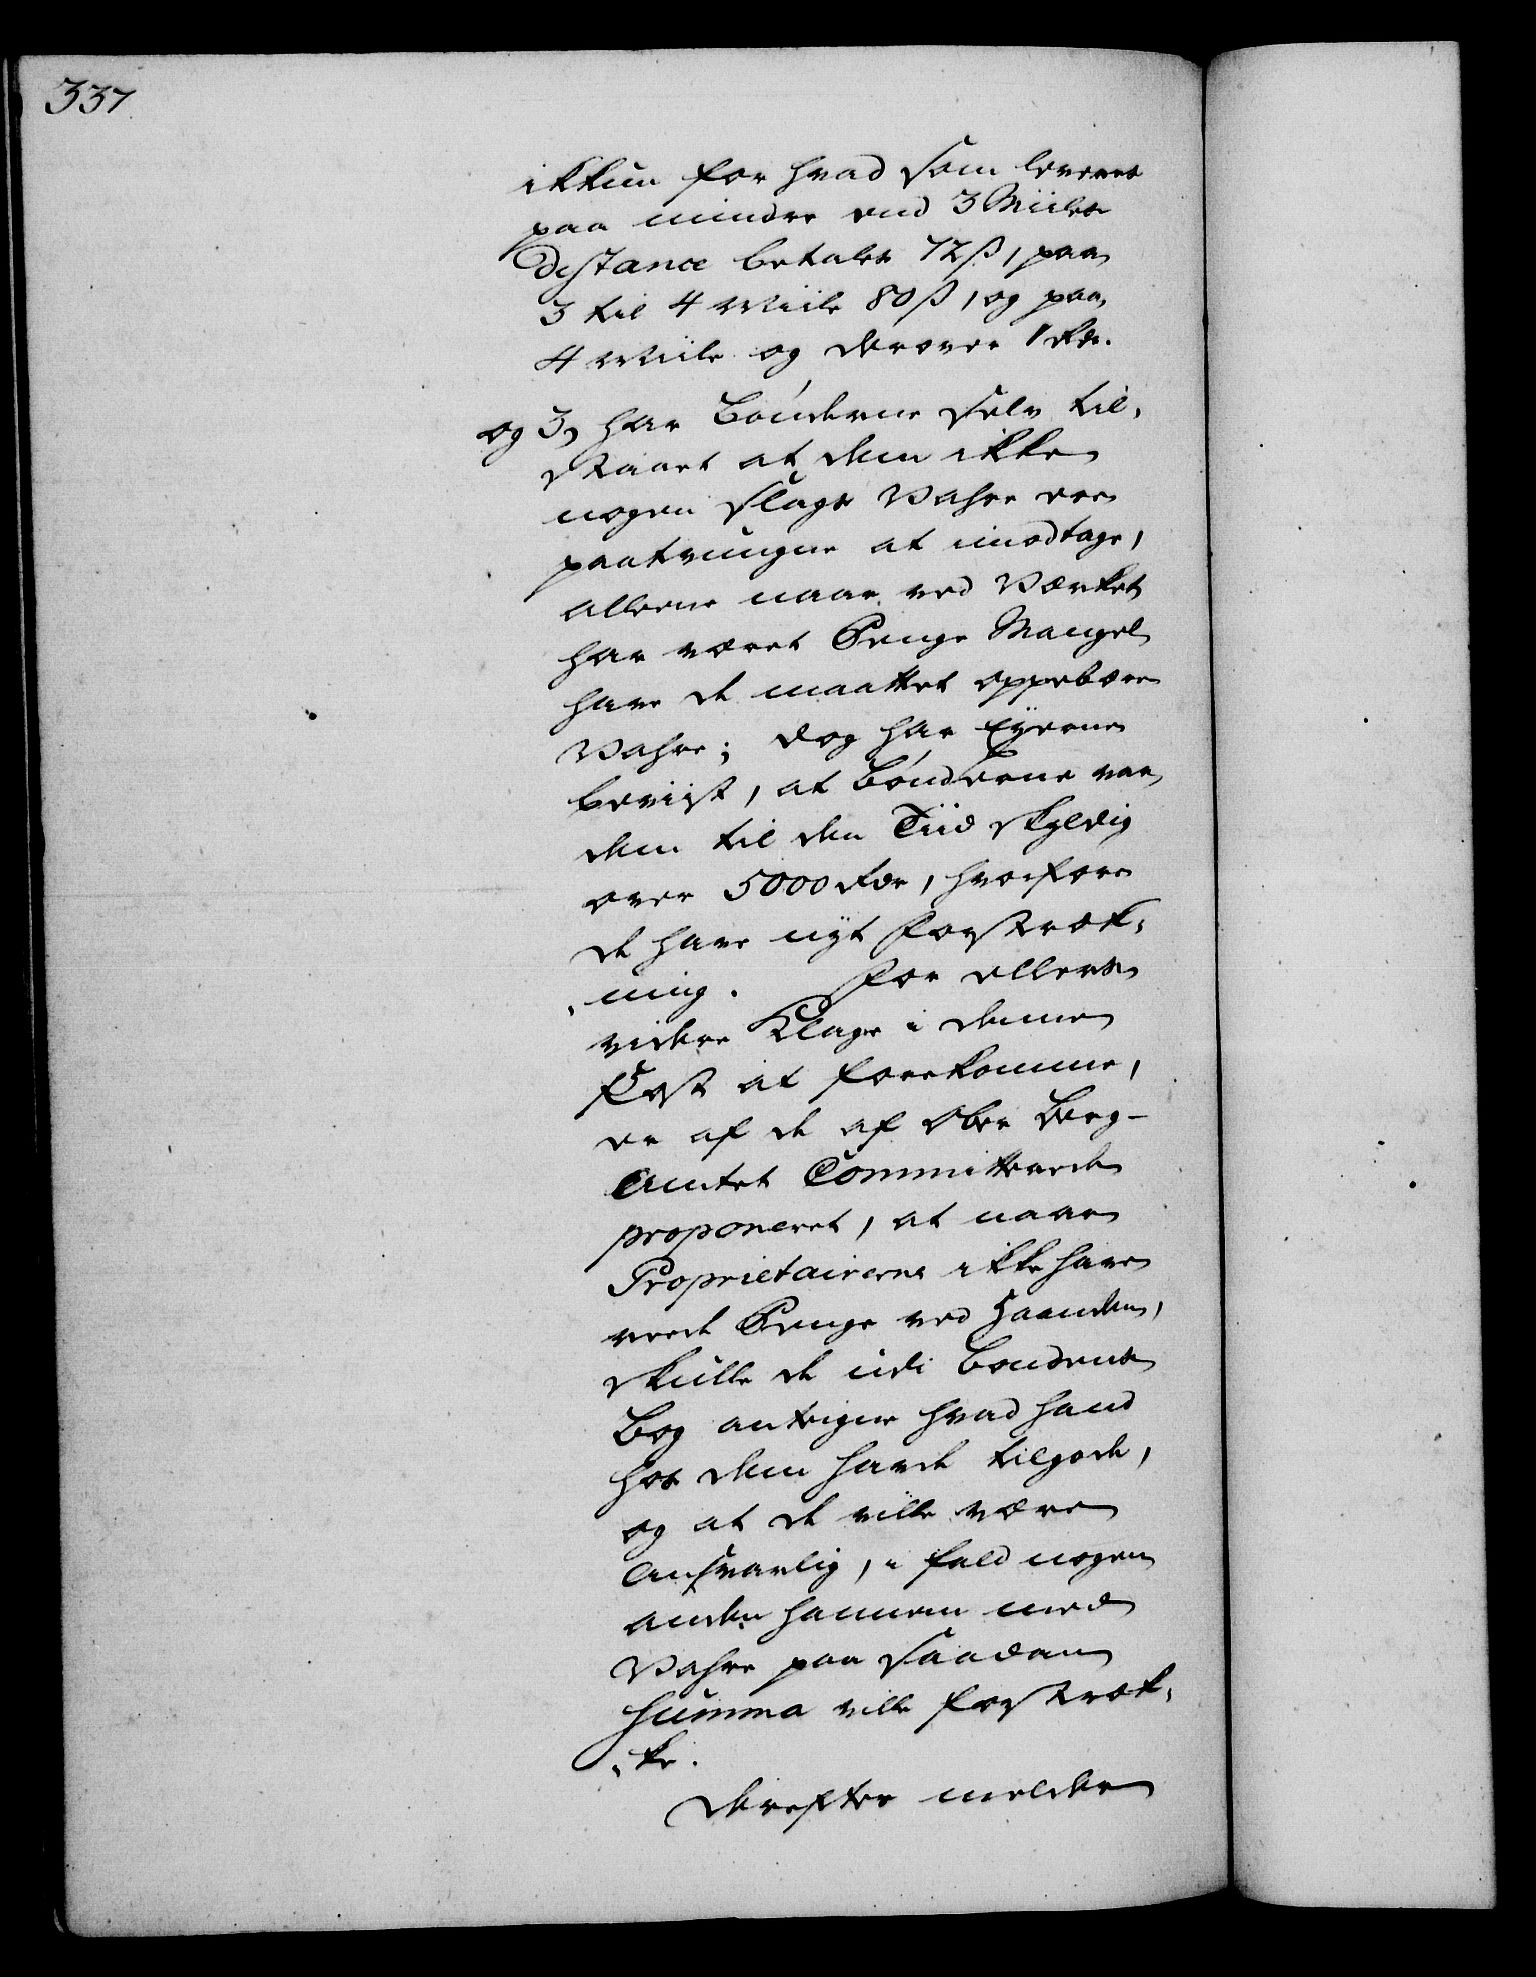 337
ikkun for hvad som leveres
paa mindre end 3 Miiles
distance betales 72 ß, paa
3 til 4 Miile 80 ß, og paa
4 Miile og derover 1 rdr.
og 3, har Bønderne selv til,
staaet at dem ikke
nogen slags Vahre ere
paatvungne at imodtage,
alleene naar ved Værket
har været Penge Mangel
have de maattet oppebære
Vahre; dog har Eyerne
beviist, at Bønderne var
dem til den Tiid skyldig
over 5000 rdr, hvorfore
de have nyt forstræk,
,ning. For ellers
videre Klage i denne
Post at forekomme,
er af de af Ober Berg-
Amtet Committerede
proponeret, at naar
Proprietairerne ikke have
reede Penge ved Haanden,
skulle de udi Bondens
Bog antegne hvad hand
hos dem havde tilgode,
og at de ville være
Ansvarlig, i fald nogen
anden hannem med
Vahre paa saadan
Summa ville forstræk,
,ke.
Derefter melder